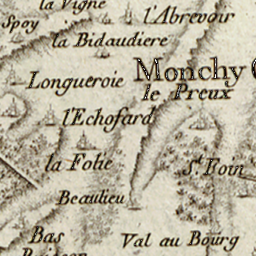 la Vigne
Spoy
l'Abrevoir
la Bidaudiere
Longueroie
Monchy
le Preux
l'Echofard
la Folie
St. Foin
Beaulieu
Bas
Val au Bourg